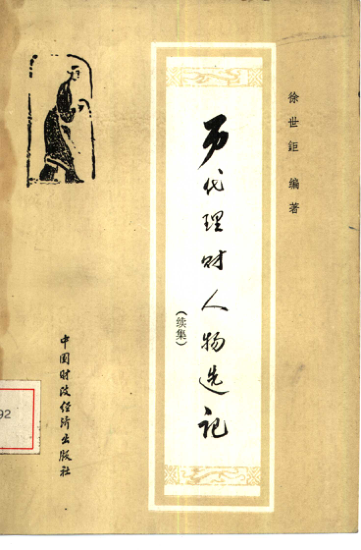 徐世钜 编著
历代理财人物选记
（续集）
中国财政经济出版社
92